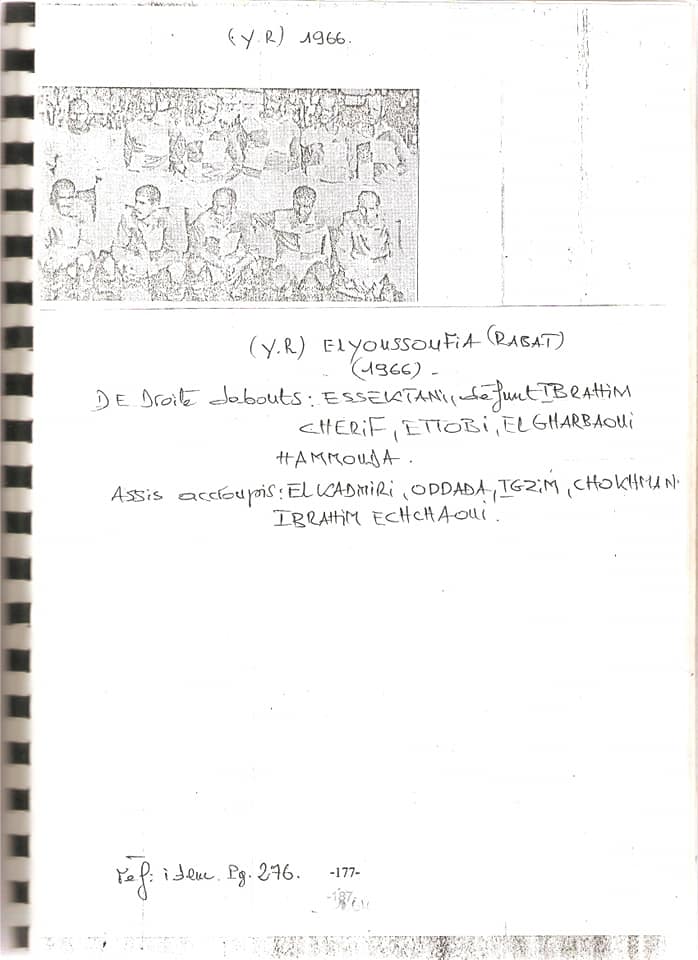 (Y.R) 1966.
(Y.R) ELYOUSSOUFIA (RABAT)
(1966) -
DE Droite debouts: ESSEKTANI, défunt IBRAHIM
CHERIF, ETTOBI, ELGHARBAOUI
HAMMOUDA.
Assis accroupis: EL KADMIRI, ODDADA, IGZIM, CHOKHMAN.
IBRAHIM ECHCHAOUI.
réf: idem. Pg. 276. -177-